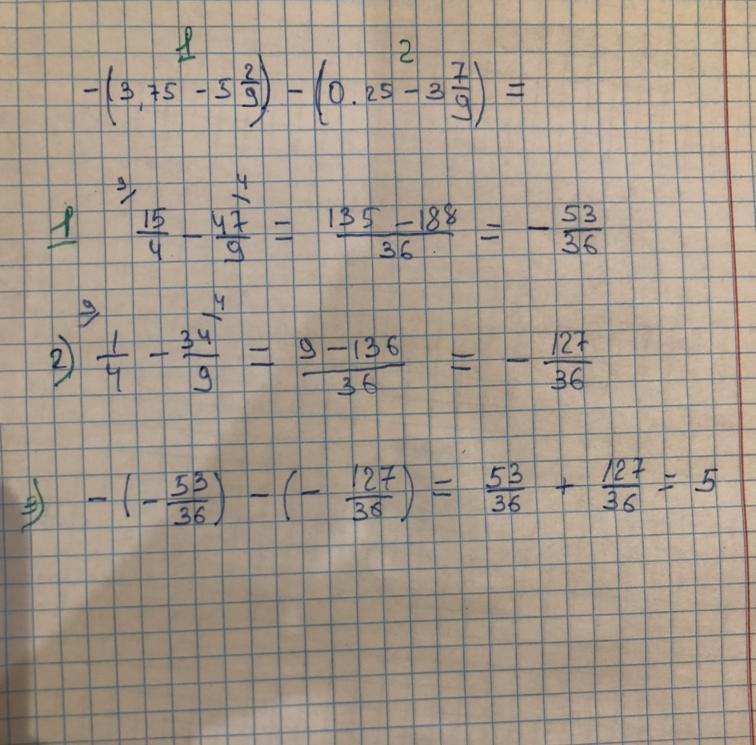 1 2
-(3,75 - 5 2/9) - (0.25 - 3 7/9) =
9/ /4
1 15/4 - 47/9 = 135 - 188/36 = - 53/36
9/ /4
2) 1/4 - 34/9 = 9 - 136/36 = - 127/36
-(- 53/36) - (- 127/36) = 53/36 + 127/36 = 5